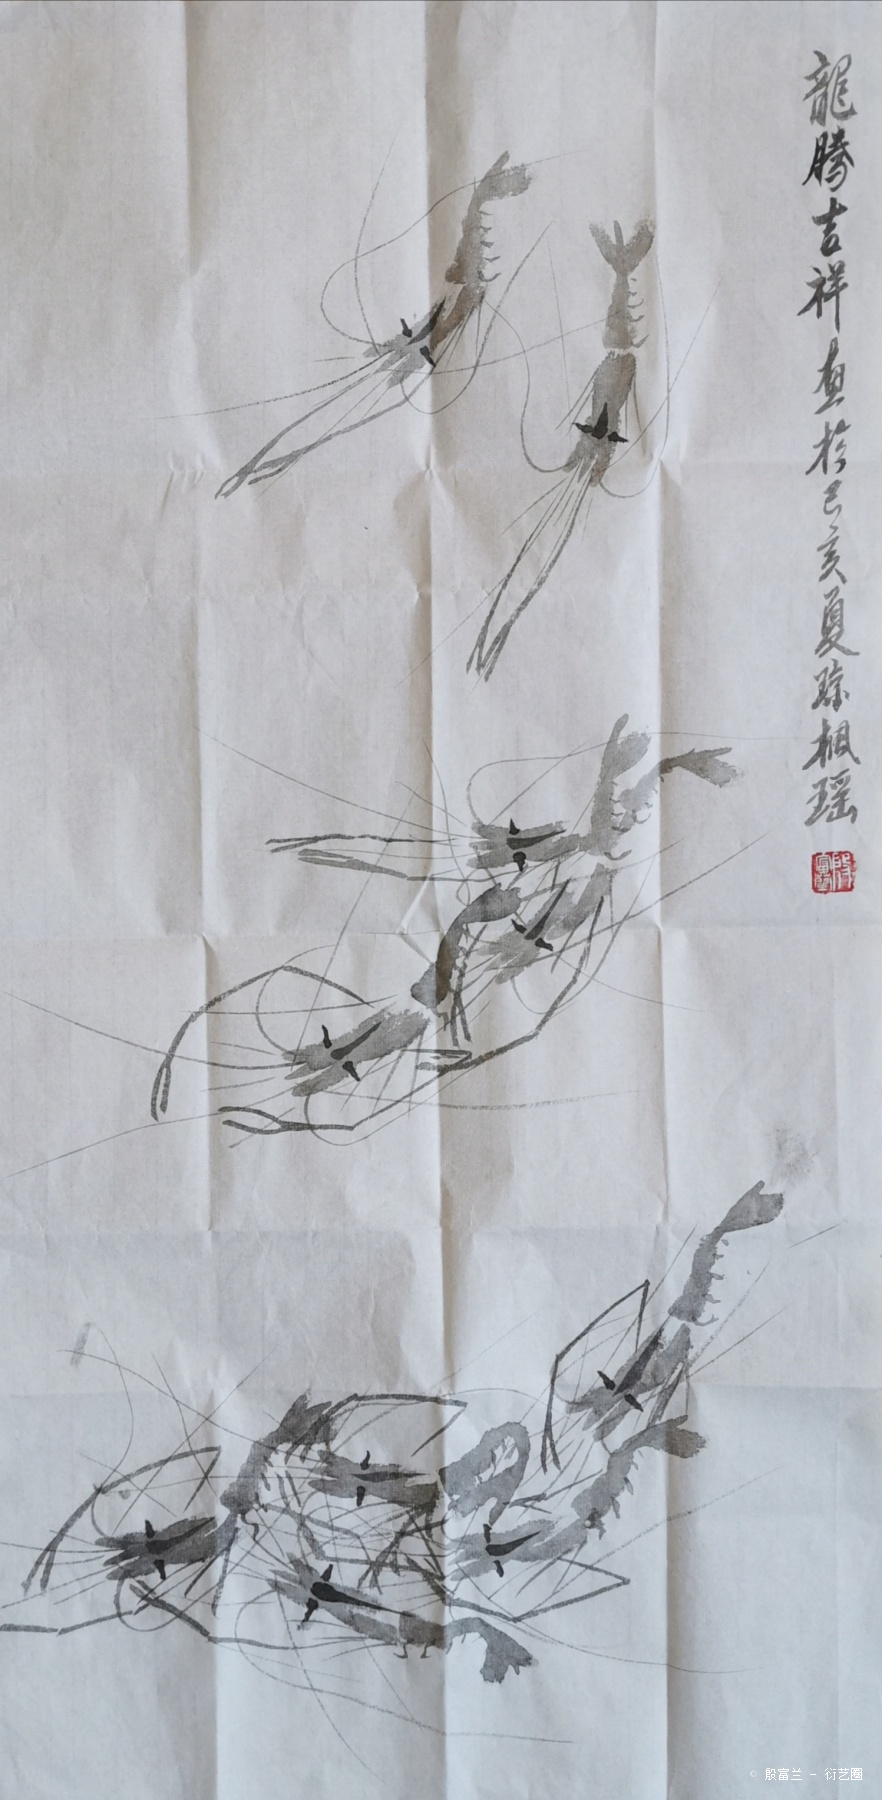 龍騰吉祥畫於己亥夏臨楓瑶
殷富蘭
© 殷富兰 - 衍艺圈